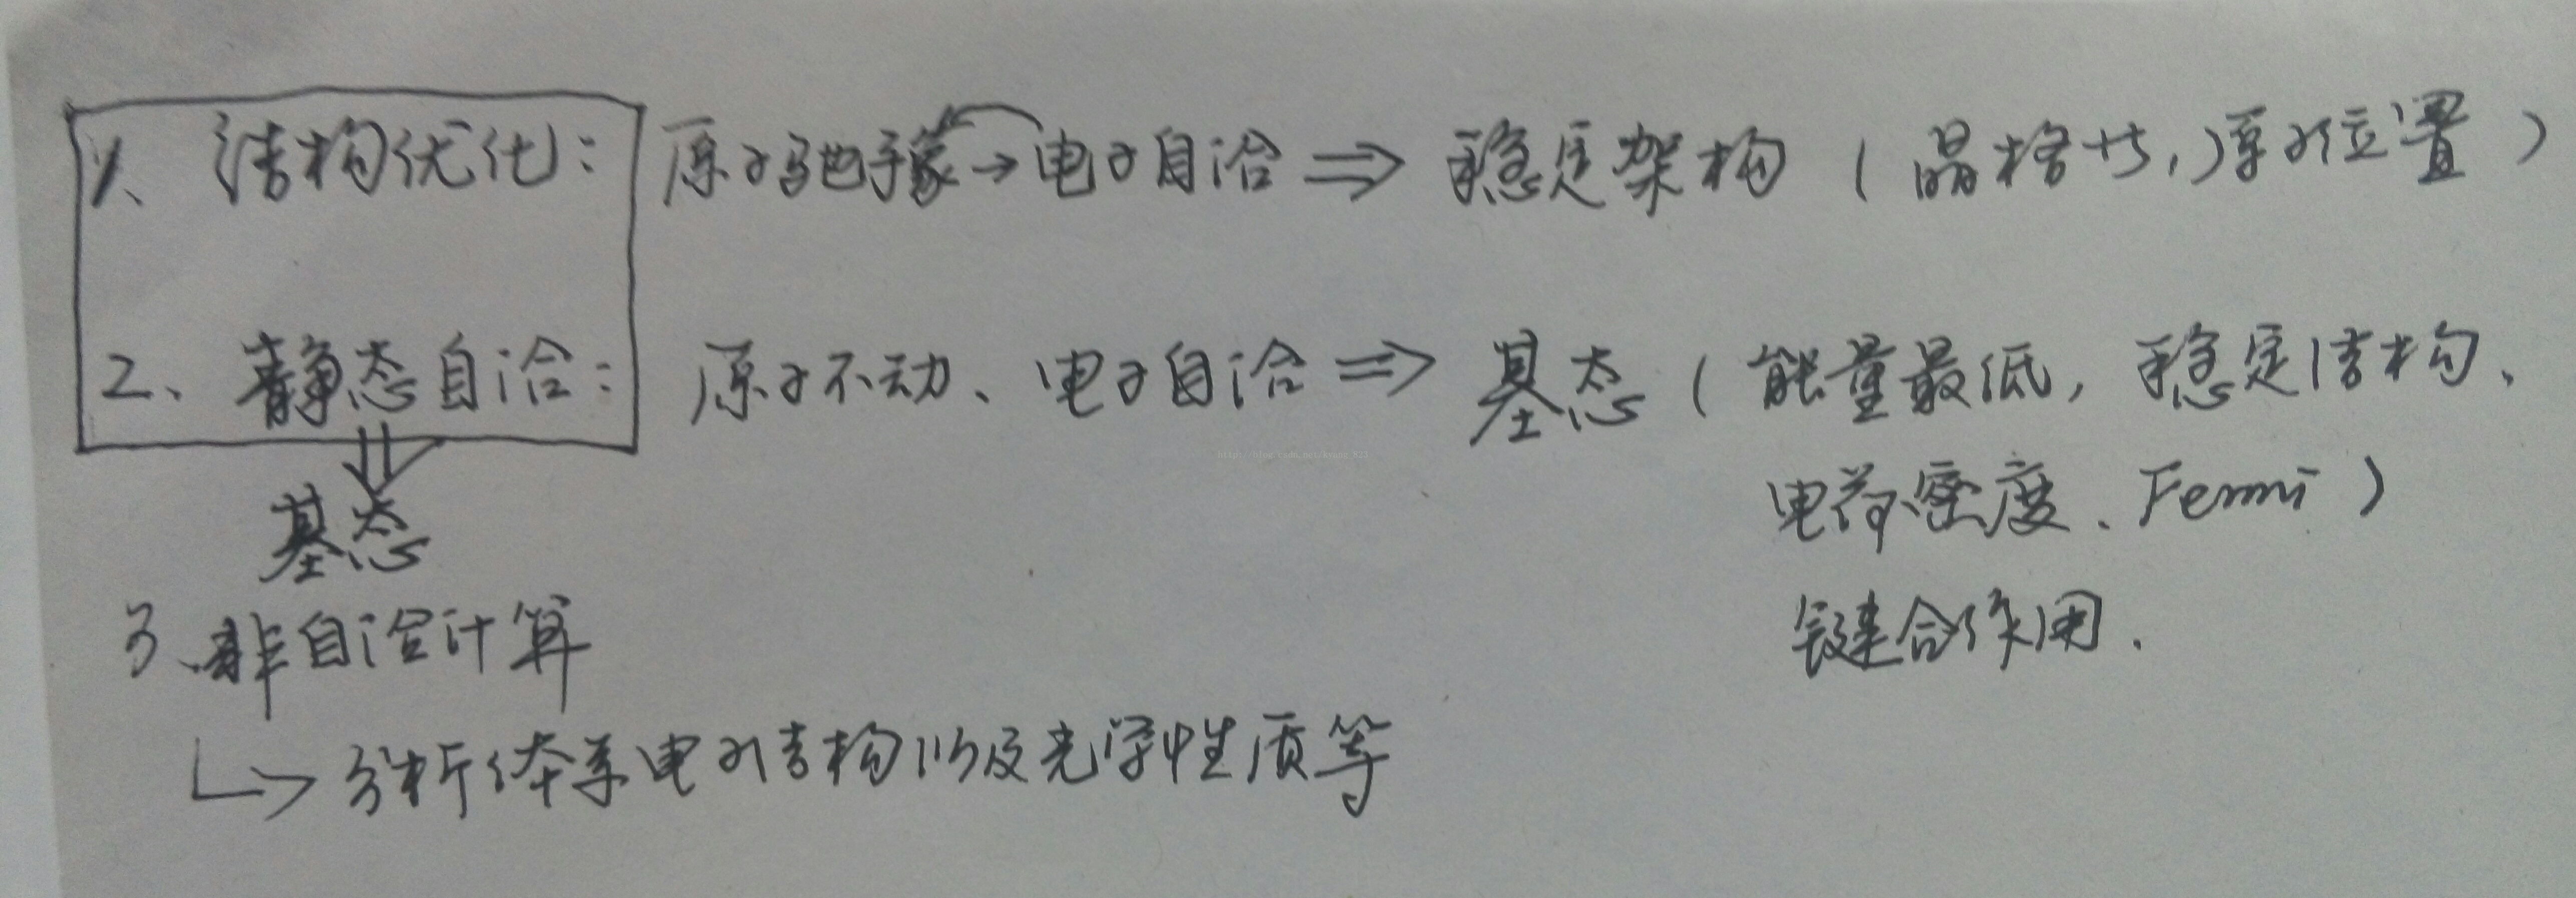 1、结构优化：原子弛豫→电子自洽⇒稳定架构（晶格,原子位置）
2、静态自洽：原子不动、电子自洽⇒基态（能量最低，稳定结构、
电荷密度、Fermi）
基态
键合作用.
3、非自洽计算
↳分析体系电子结构以及光学性质等